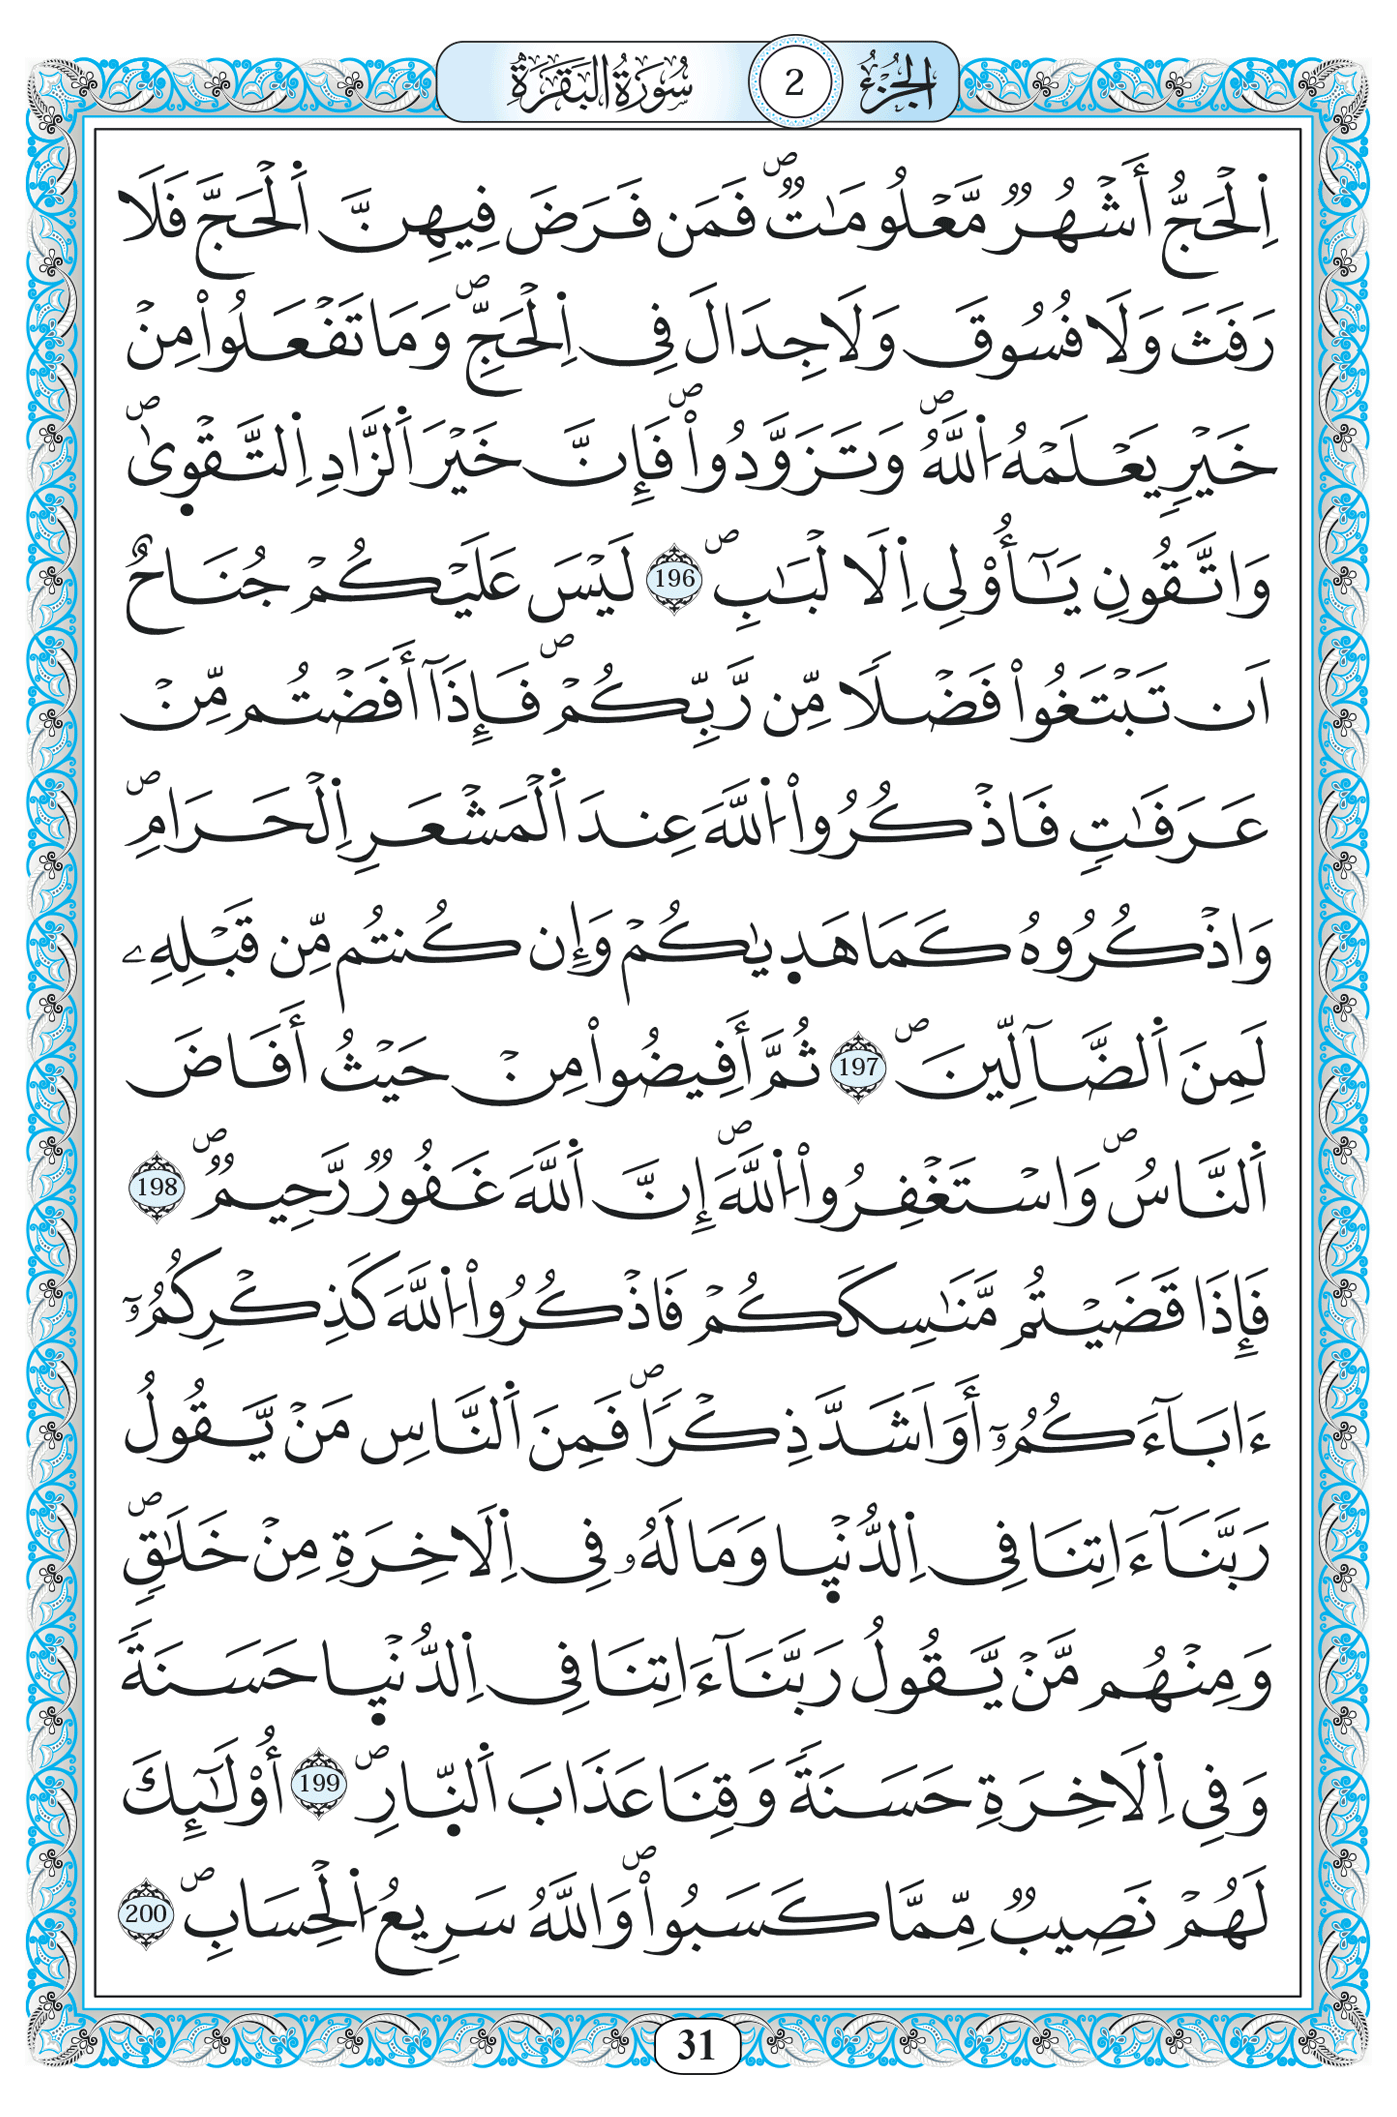 الجزء 2 سورة البقرة
اِ۬لْحَجُّ أَشْهُرٞ مَّعْلُومَٰتٞۖ فَمَن فَرَضَ فِيهِنَّ اَ۬لْحَجَّ فَلَا
رَفَثَ وَلَا فُسُوقَ وَلَا جِدَالَ فِے اِ۬لْحَجِّۖ وَمَا تَفْعَلُواْ مِنْ
خَيْرٖ يَعْلَمْهُ اُ۬للَّهُۖ وَتَزَوَّدُواْۖ فَإِنَّ خَيْرَ اَ۬لزَّادِ اِ۬لتَّقْو۪ىٰۖ
وَاتَّقُونِ يَٰٓأُوْلِے اِ۬لَالْبَٰبِۖ 196 لَيْسَ عَلَيْكُمْ جُنَاحٌ
اَن تَبْتَغُواْ فَضْلاٗ مِّن رَّبِّكُمْۖ فَإِذَآ أَفَضْتُم مِّنْ
عَرَفَٰتٖ فَاذْكُرُواْ اُ۬للَّهَ عِندَ اَ۬لْمَشْعَرِ اِ۬لْحَرَامِۖ
وَاذْكُرُوهُ كَمَا هَد۪يٰكُمْ وَإِن كُنتُم مِّن قَبْلِهِۦ
لَمِنَ اَ۬لضَّآلِّينَۖ 197 ثُمَّ أَفِيضُواْ مِنْ حَيْثُ أَفَاضَ
اَ۬لنَّاسُۖ وَاسْتَغْفِرُواْ اُ۬للَّهَۖ إِنَّ اَ۬للَّهَ غَفُورٞ رَّحِيمٞۖ 198
فَإِذَا قَضَيْتُم مَّنَٰسِكَكُمْ فَاذْكُرُواْ اُ۬للَّهَ كَذِكْرِكُمُۥٓ
ءَابَآءَكُمُۥٓ أَوَ اَشَدَّ ذِكْراٗۖ فَمِنَ اَ۬لنَّاسِ مَنْ يَّقُولُ
رَبَّنَآ ءَاتِنَا فِے اِ۬لدُّنْي۪ا وَمَا لَهُۥ فِے اِ۬لَاخِرَةِ مِنْ خَلَٰقٖۖ
وَمِنْهُم مَّنْ يَّقُولُ رَبَّنَآ ءَاتِنَا فِے اِ۬لدُّنْي۪ا حَسَنَةٗ
وَفِے اِ۬لَاخِرَةِ حَسَنَةٗ وَقِنَا عَذَابَ اَ۬لنّ۪ارِۖ 199 أُوْلَٰٓئِكَ
لَهُمْ نَصِيبٞ مِّمَّا كَسَبُواْۖ وَاللَّهُ سَرِيعُ اُ۬لْحِسَابِۖ 200
31